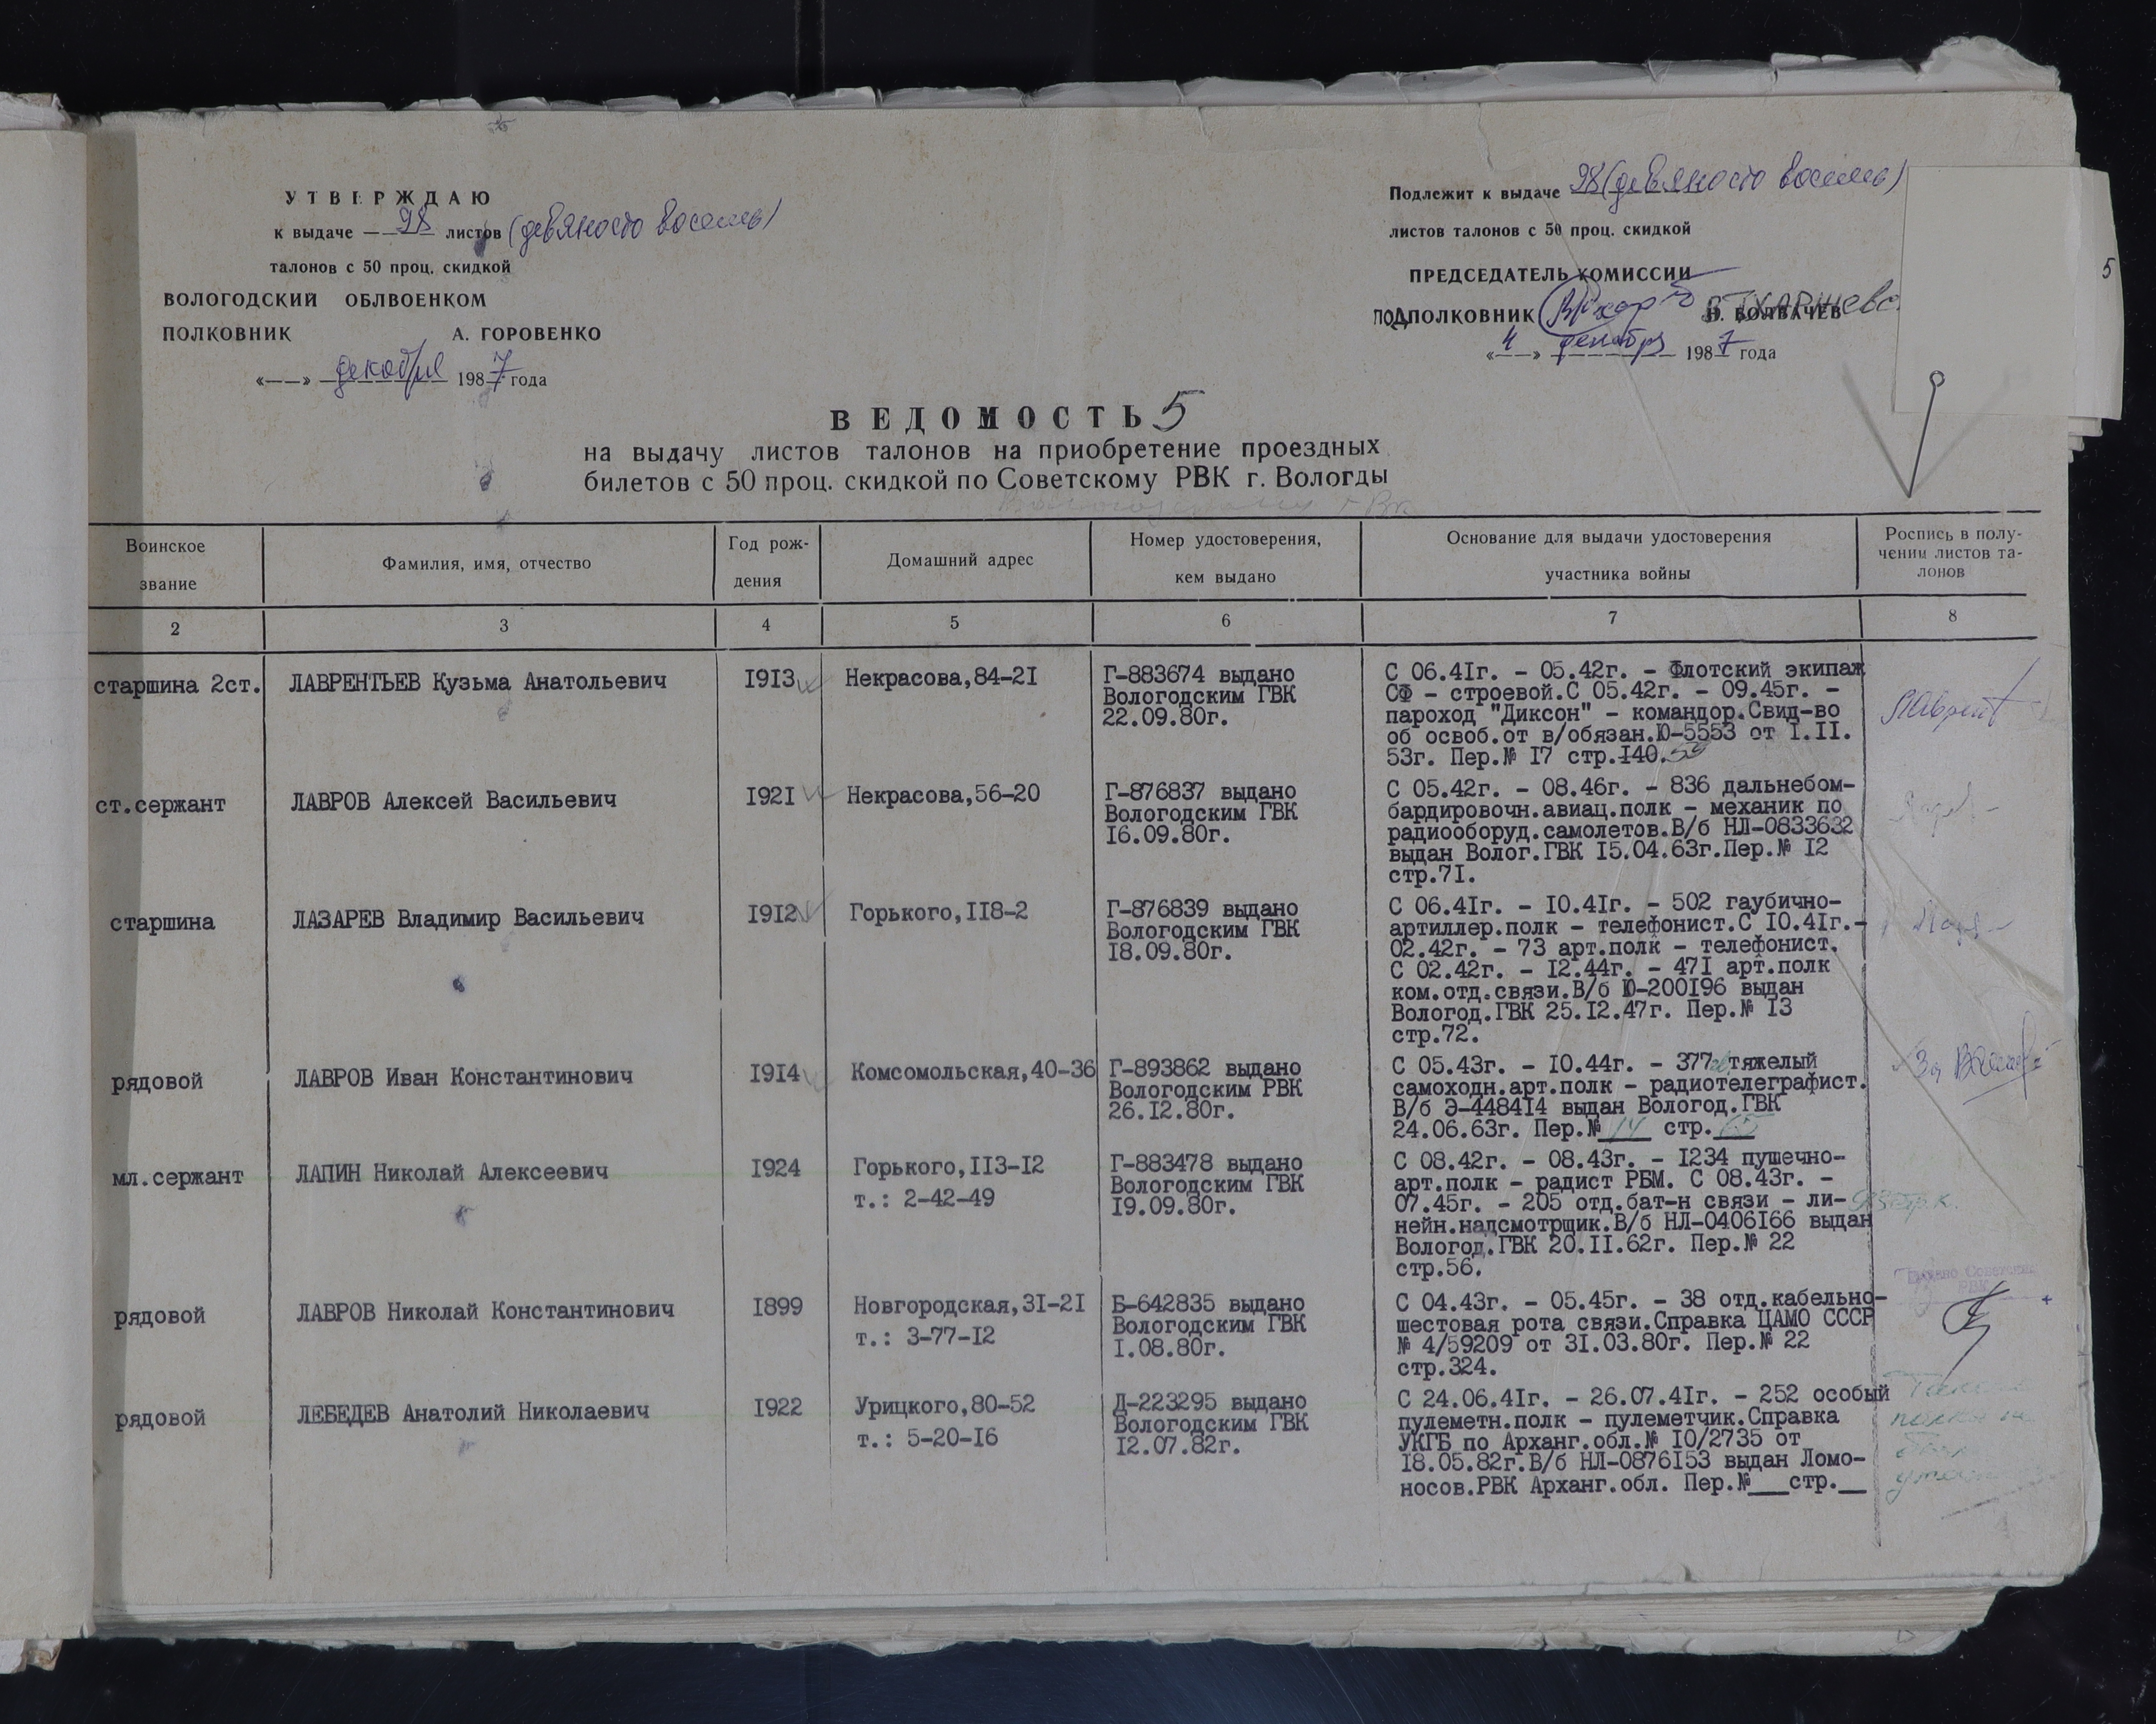 УТВЕРЖДАЮ
к выдаче — 98 листов (девяносто восемь)
талонов с 50 проц. скидкой
ВОЛОГОДСКИЙ ОБЛВОЕНКОМ
ПОЛКОВНИК А. ГОРОВЕНКО
«——» декабря 1987 года
Подлежит к выдаче 98 (девяносто восемь)
листов талонов с 50 проц. скидкой
ПРЕДСЕДАТЕЛЬ КОМИССИИ
ПОДПОЛКОВНИК
«4» декабря 1987 года
5
ВЕДОМОСТЬ 5
на выдачу листов талонов на приобретение проездных
билетов с 50 проц. скидкой по Советскому РВК г. Вологды
Воинское
звание
Фамилия, имя, отчество
Год рож-
дения
Домашний адрес
Номер удостоверения,
кем выдано
Основание для выдачи удостоверения
участника войны
Роспись в полу-
чении листов та-
лонов
2 3 4 5 6 7 8
старшина 2ст.
ЛАВРЕНТЬЕВ Кузьма Анатольевич
1913
Некрасова,84-21
Г-883674 выдано
Вологодским ГВК
22.09.80г.
С 06.41г. - 05.42г. - Флотский экипаж
СФ - строевой.С 05.42г. - 09.45г. -
пароход "Диксон" - командор.Свид-во
об освоб.от в/обязан.Ю-5553 от 1.11.
53г. Пер.№ 17 стр.140.
ст.сержант
ЛАВРОВ Алексей Васильевич
1921
Некрасова,56-20
Г-876837 выдано
Вологодским ГВК
16.09.80г.
С 05.42г. - 08.46г. - 836 дальнебом-
бардировочн.авиац.полк - механик по
радиооборуд.самолетов.В/б НЛ-0833632
выдан Волог.ГВК 15.04.63г.Пер.№ 12
стр.71.
старшина
ЛАЗАРЕВ Владимир Васильевич
1912
Горького,118-2
Г-876839 выдано
Вологодским ГВК
18.09.80г.
С 06.41г. - 10.41г. - 502 гаубично-
артиллер.полк - телефонист.С 10.41г.-
02.42г. - 73 арт.полк - телефонист.
С 02.42г. - 12.44г. - 471 арт.полк
ком.отд.связи.В/б Ю-200196 выдан
Вологод.ГВК 25.12.47г. Пер.№ 13
стр.72.
рядовой
ЛАВРОВ Иван Константинович
1914
Комсомольская,40-36
Г-893862 выдано
Вологодским РВК
26.12.80г.
С 05.43г. - 10.44г. - 377 тяжелый
самоходн.арт.полк - радиотелеграфист.
В/б Э-448414 выдан Вологод.ГВК
24.06.63г. Пер.№ 14 стр.
мл.сержант
ЛАПИН Николай Алексеевич
1924
Горького,113-12
т.: 2-42-49
Г-883478 выдано
Вологодским ГВК
19.09.80г.
С 08.42г. - 08.43г. - 1234 пушечно-
арт.полк - радист РБМ. С 08.43г. -
07.45г. - 205 отд.бат-н связи - ли-
нейн.надсмотрщик.В/б НЛ-0406166 выдан
Вологод.ГВК 20.11.62г. Пер.№ 22
стр.56.
рядовой
ЛАВРОВ Николай Константинович
1899
Новгородская,31-21
т.: 3-77-12
Б-642835 выдано
Вологодским ГВК
1.08.80г.
С 04.43г. - 05.45г. - 38 отд.кабельно-
шестовая рота связи.Справка ЦАМО СССР
№ 4/59209 от 31.03.80г. Пер.№ 22
стр.324.
рядовой
ЛЕБЕДЕВ Анатолий Николаевич
1922
Урицкого,80-52
т.: 5-20-16
Д-223295 выдано
Вологодским ГВК
12.07.82г.
С 24.06.41г. - 26.07.41г. - 252 особый
пулеметн.полк - пулеметчик.Справка
УКГБ по Арханг.обл.№ 10/2735 от
18.05.82г.В/б НЛ-0876153 выдан Ломо-
носов.РВК Арханг.обл. Пер.№___стр.__